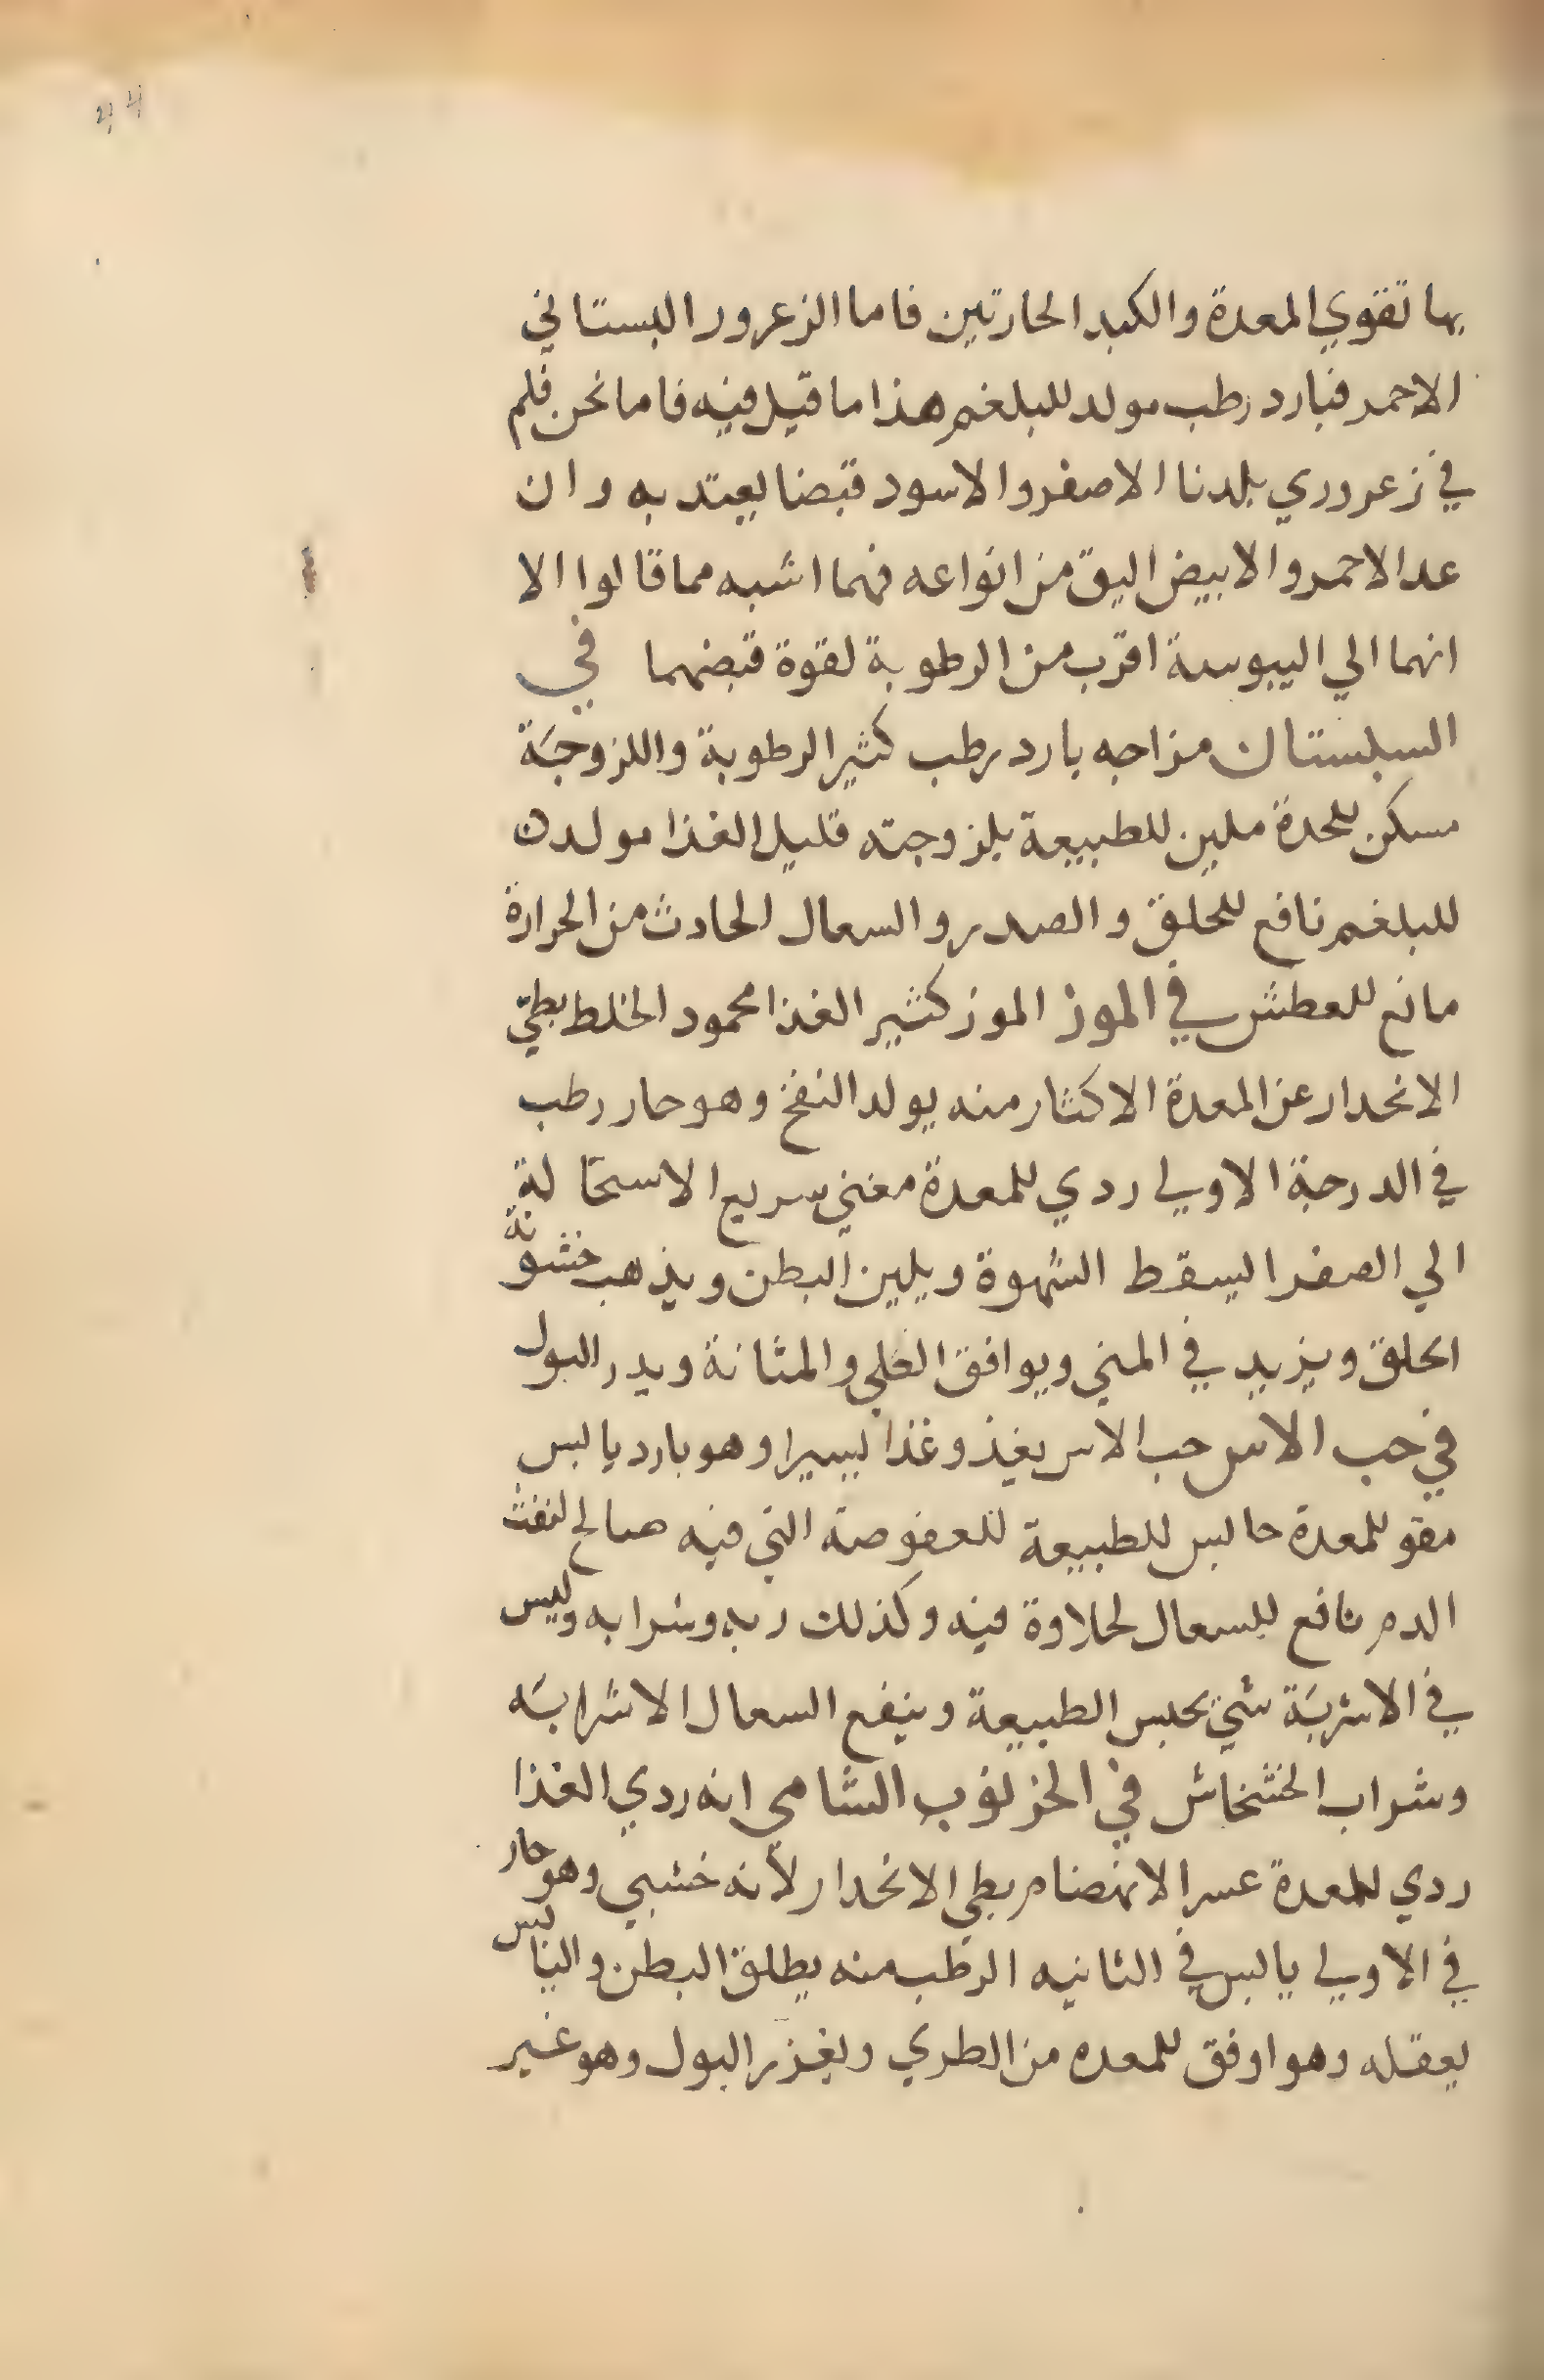 بها تقوي المعدة والكبد الحارتين فاما الزعرور البستاني
الاحمر فبارد رطب مولد للبلغم هذا ما قيل فيه فاما نحن فلم
في زعروري بلدنا الاصفر والاسود قبضا يعتد به وان
عد الاحمر والابيض اليق من انواعه فهما اشبه مما قالوا الا
انهما الي اليبوسة اقرب من الرطوبة لقوة قبضهما في
السبلستان مزاجه بارد رطب كثير الرطوبة واللزوجة
مسكن للحدة ملين للطبيعة بلزوجته قليل الغذا مولدن
للبلغم نافع للحلق والصدر والسعال الحادث من الحرارة
مانع للعطش في الموز الموز كثير الغذا محمود الخلط بطئ
الانحدار عن المعدة الاكثار منه يولد النفخ وهو حار رطب
في الدرجة الاولي ردي للمعدة مغني سريع الاستحالة
الي الصفرا ليسقط الشهوة ويلين البطن ويذهب خشونة
الحلق ويزيد في المني ويوافق الكلي والمثانة ويدر البول
في حب الاس حب الاس يغذو غذا يسيرا وهو بارد يابس
مقو للمعدة حابس للطبيعة للعفوصة التي فيه صالح لنفث
الدم نافع للسعال لحلاوة فيه وكذلك ربه وشرابه وليس
في الاشربة شئ يحبس الطبيعة وينفع السعال الا شرابه
وشراب الخشخاش في الخرنوب الشامي انه ردي الغذا
ردي للمعدة عسر الانهضام بطي الانحدار لأنه خشبي وهو حار
في الاولي يابس في الثانيه الرطب منه يطلق البطن واليابس
يعقله وهو اوفق للمعده من الطري ويغزر البول وهو غير